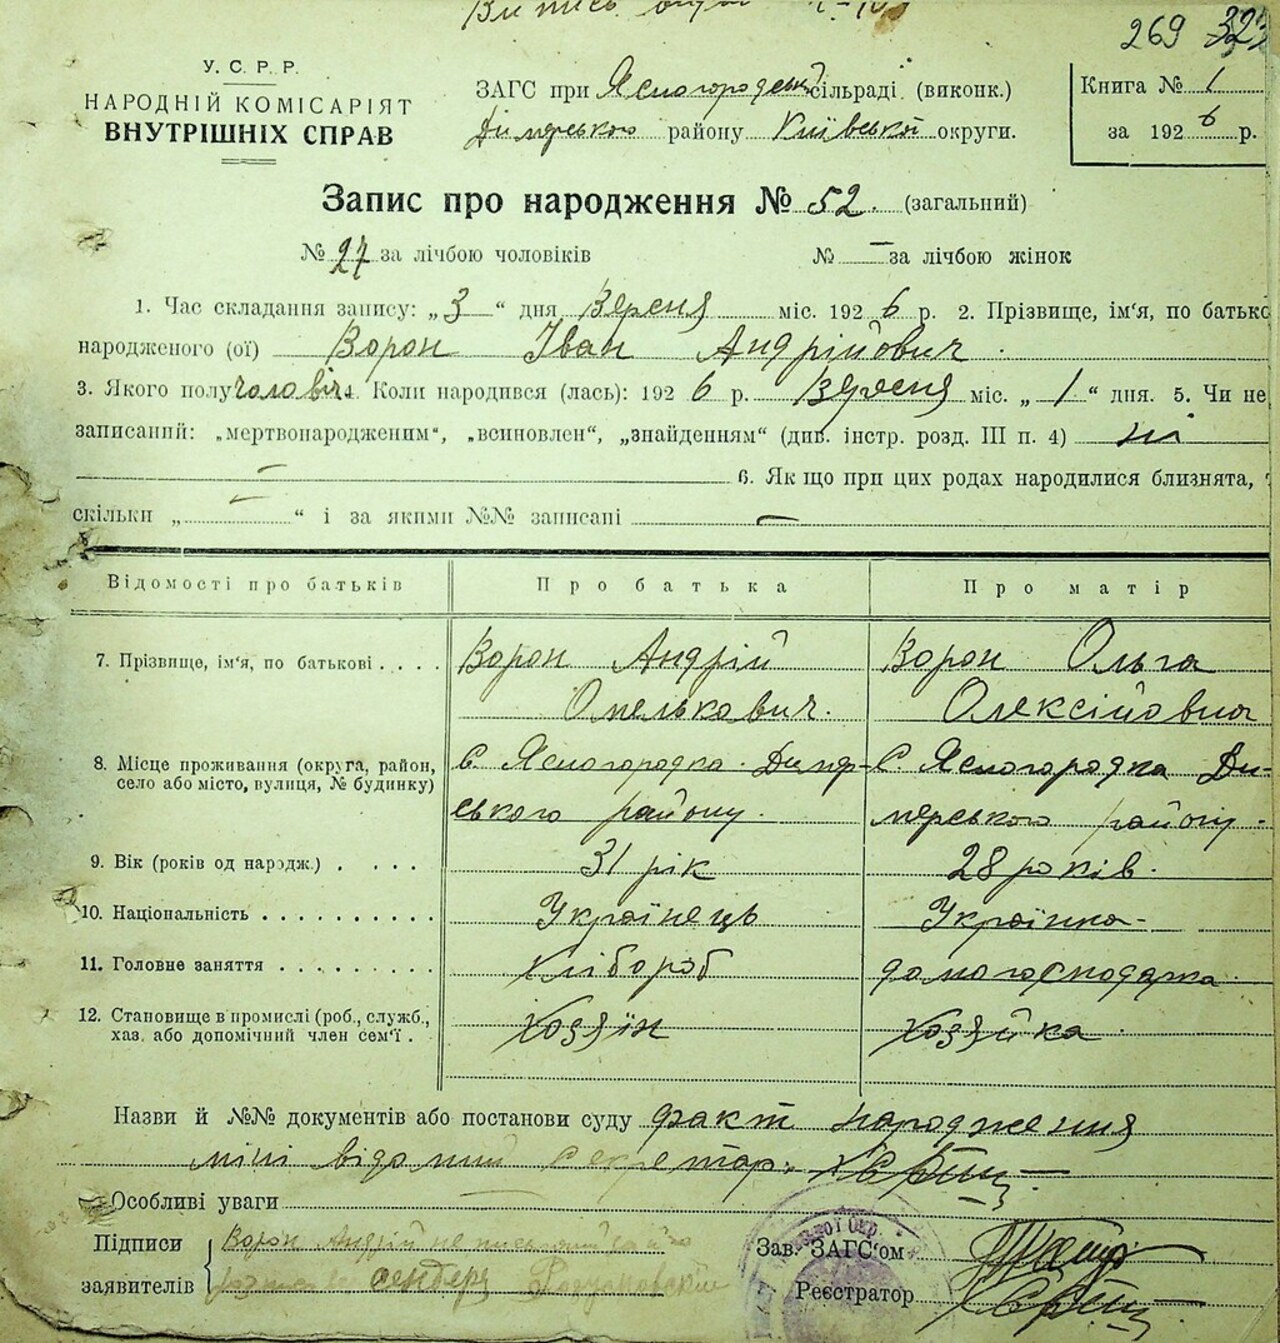 269 323
У. С. Р. Р.
НАРОДНІЙ КОМІСАРІЯТ
ВНУТРІШНІХ СПРАВ
ЗАГС при Ясногородській сільраді (виконк.)
Димерського району Київської округи.
Книга № 1
за 1926 р.
Запис про народження № 52. (загальний)
№ 27 за лічбою чоловіків № — за лічбою жінок
1. Час складання запису: „3“ дня Вересня міс. 1926 р. 2. Прізвище, ім'я, по батько
народженого (ої) Ворон Іван Андрійович.
3. Якого полу чоловіч. 4. Коли народився (лась): 1926 р. Вересня міс. „1“ дня. 5. Чи не
записаний: „мертвонародженим“, „всиновлен“, „знайденням“ (див. інстр. розд. III п. 4) ні
— 6. Як що при цих родах народилися близнята,
скільки „—“ і за якими №№ записані —
Відомості про батьків Про батька Про матір
7. Прізвище, ім'я, по батькові . . . . Ворон Андрій Ворон Ольга
Омелькович. Олексійовна
8. Місце проживання (округа, район, с. Ясногородка. Димер- с. Ясногородка Ди-
село або місто, вулиця, № будинку) ського району. мерського району.
9. Вік (років од народж.) . . . . 31 рік 28 років.
10. Національність . . . . . . . . . . Українець Українка
11. Головне заняття . . . . . . . . . хлібороб домогосподарка.
12. Становище в промислі (роб., служб., Хозяїн Хозяйка.
хаз. або допомічний член сем'ї .
Назви й №№ документів або постанови суду факт народження
міні відомий секретар.
Особливі уваги —
Підписи Ворон Андрій не письменний за його
заявителів
Зав. ЗАГС'ом
Реєстратор